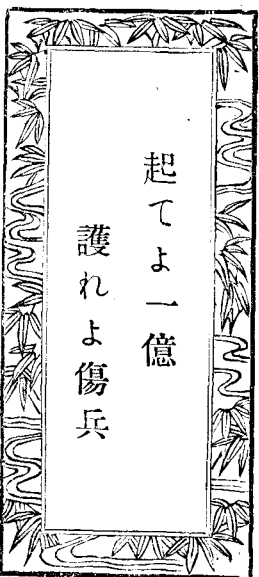 起てよ一億
護れよ傷兵